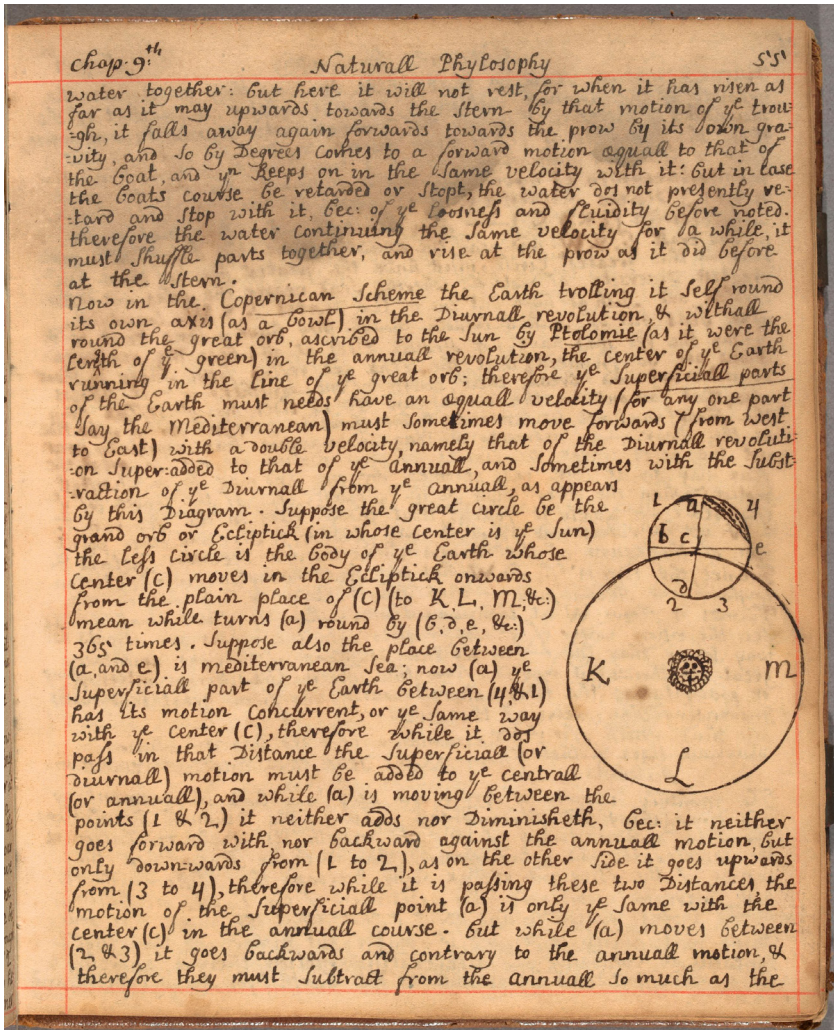 Chap. 9.th Naturall Phylosophy 55
water together: but here it will not rest, for when it has risen as
far as it may upwards towards the stern by that motion of ye trou-
-gh, it falls away again forwards towards the prow by its own gra-
-vity, and so by Degrees comes to a forward motion æquall to that of
the boat, and yn keeps on in the same velocity with it: but in case
the boats course be retarded or stopt, the water dos not presently re-
-tard and stop with it, bec: of ye loosness and fluidity before noted.
therefore the water continuing the same velocity for a while, it
must shuffle parts together, and rise at the prow as it did before
at the stern.
Now in the Copernican Scheme the Earth trolling it self round
its own axis (as a bowl) in the Diurnall revolution, & withall
round the great orb, ascribed to the Sun by Ptolomie (as it were the
length of ye green) in the annuall revolution, the center of ye Earth
running in the line of ye great orb; therefore ye Superficiall parts
of the Earth must needs have an æquall velocity (for any one part
say the Mediterranean) must sometimes move forwards (from west
to East) with a double velocity, namely that of the Diurnall revoluti-
-on super-added to that of ye annuall, and sometimes with the subst-
-raction of ye Diurnall from ye annuall, as appears
by this Diagram. Suppose the great circle be the
grand orb or Ecliptick (in whose center is ye Sun)
the less circle is the body of ye Earth whose
Center (c) moves in the Ecliptick onwards
from the plain place of (C) (to K, L, M, &c:)
mean while turns (a) round by (b, d, e, &c:)
365 times. Suppose also the place between
(a, and e) is mediterranean Sea; now (a) ye
Superficiall part of ye Earth between (4, & 1)
has its motion concurrent, or ye same way
with ye center (C), therefore while it dos
pass in that Distance the Superficiall (or
diurnall) motion must be added to ye centrall
(or annuall), and while (a) is moving between the
points (1 & 2) it neither adds nor Diminisheth, bec: it neither
goes forward with, nor backward against the annuall motion, but
only down-wards from (1 to 2), as on the other side it goes upwards
from (3 to 4), therefore while it is passing these two Distances, the
motion of the Superficiall point (a) is only ye same with the
center (c) in the annuall course. but while (a) moves between
(2 & 3) it goes backwards and contrary to the annuall motion, &
therefore they must subtract from the annuall so much as the
1 a 4
b c e
d
2 3
K M
L